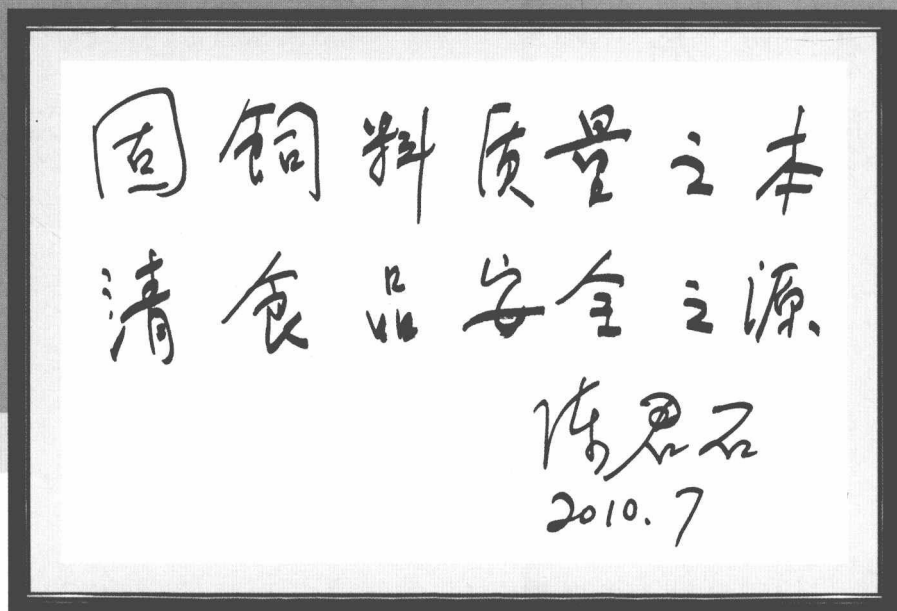 固饲料质量之本
清食品安全之源
陈君石
2010.7